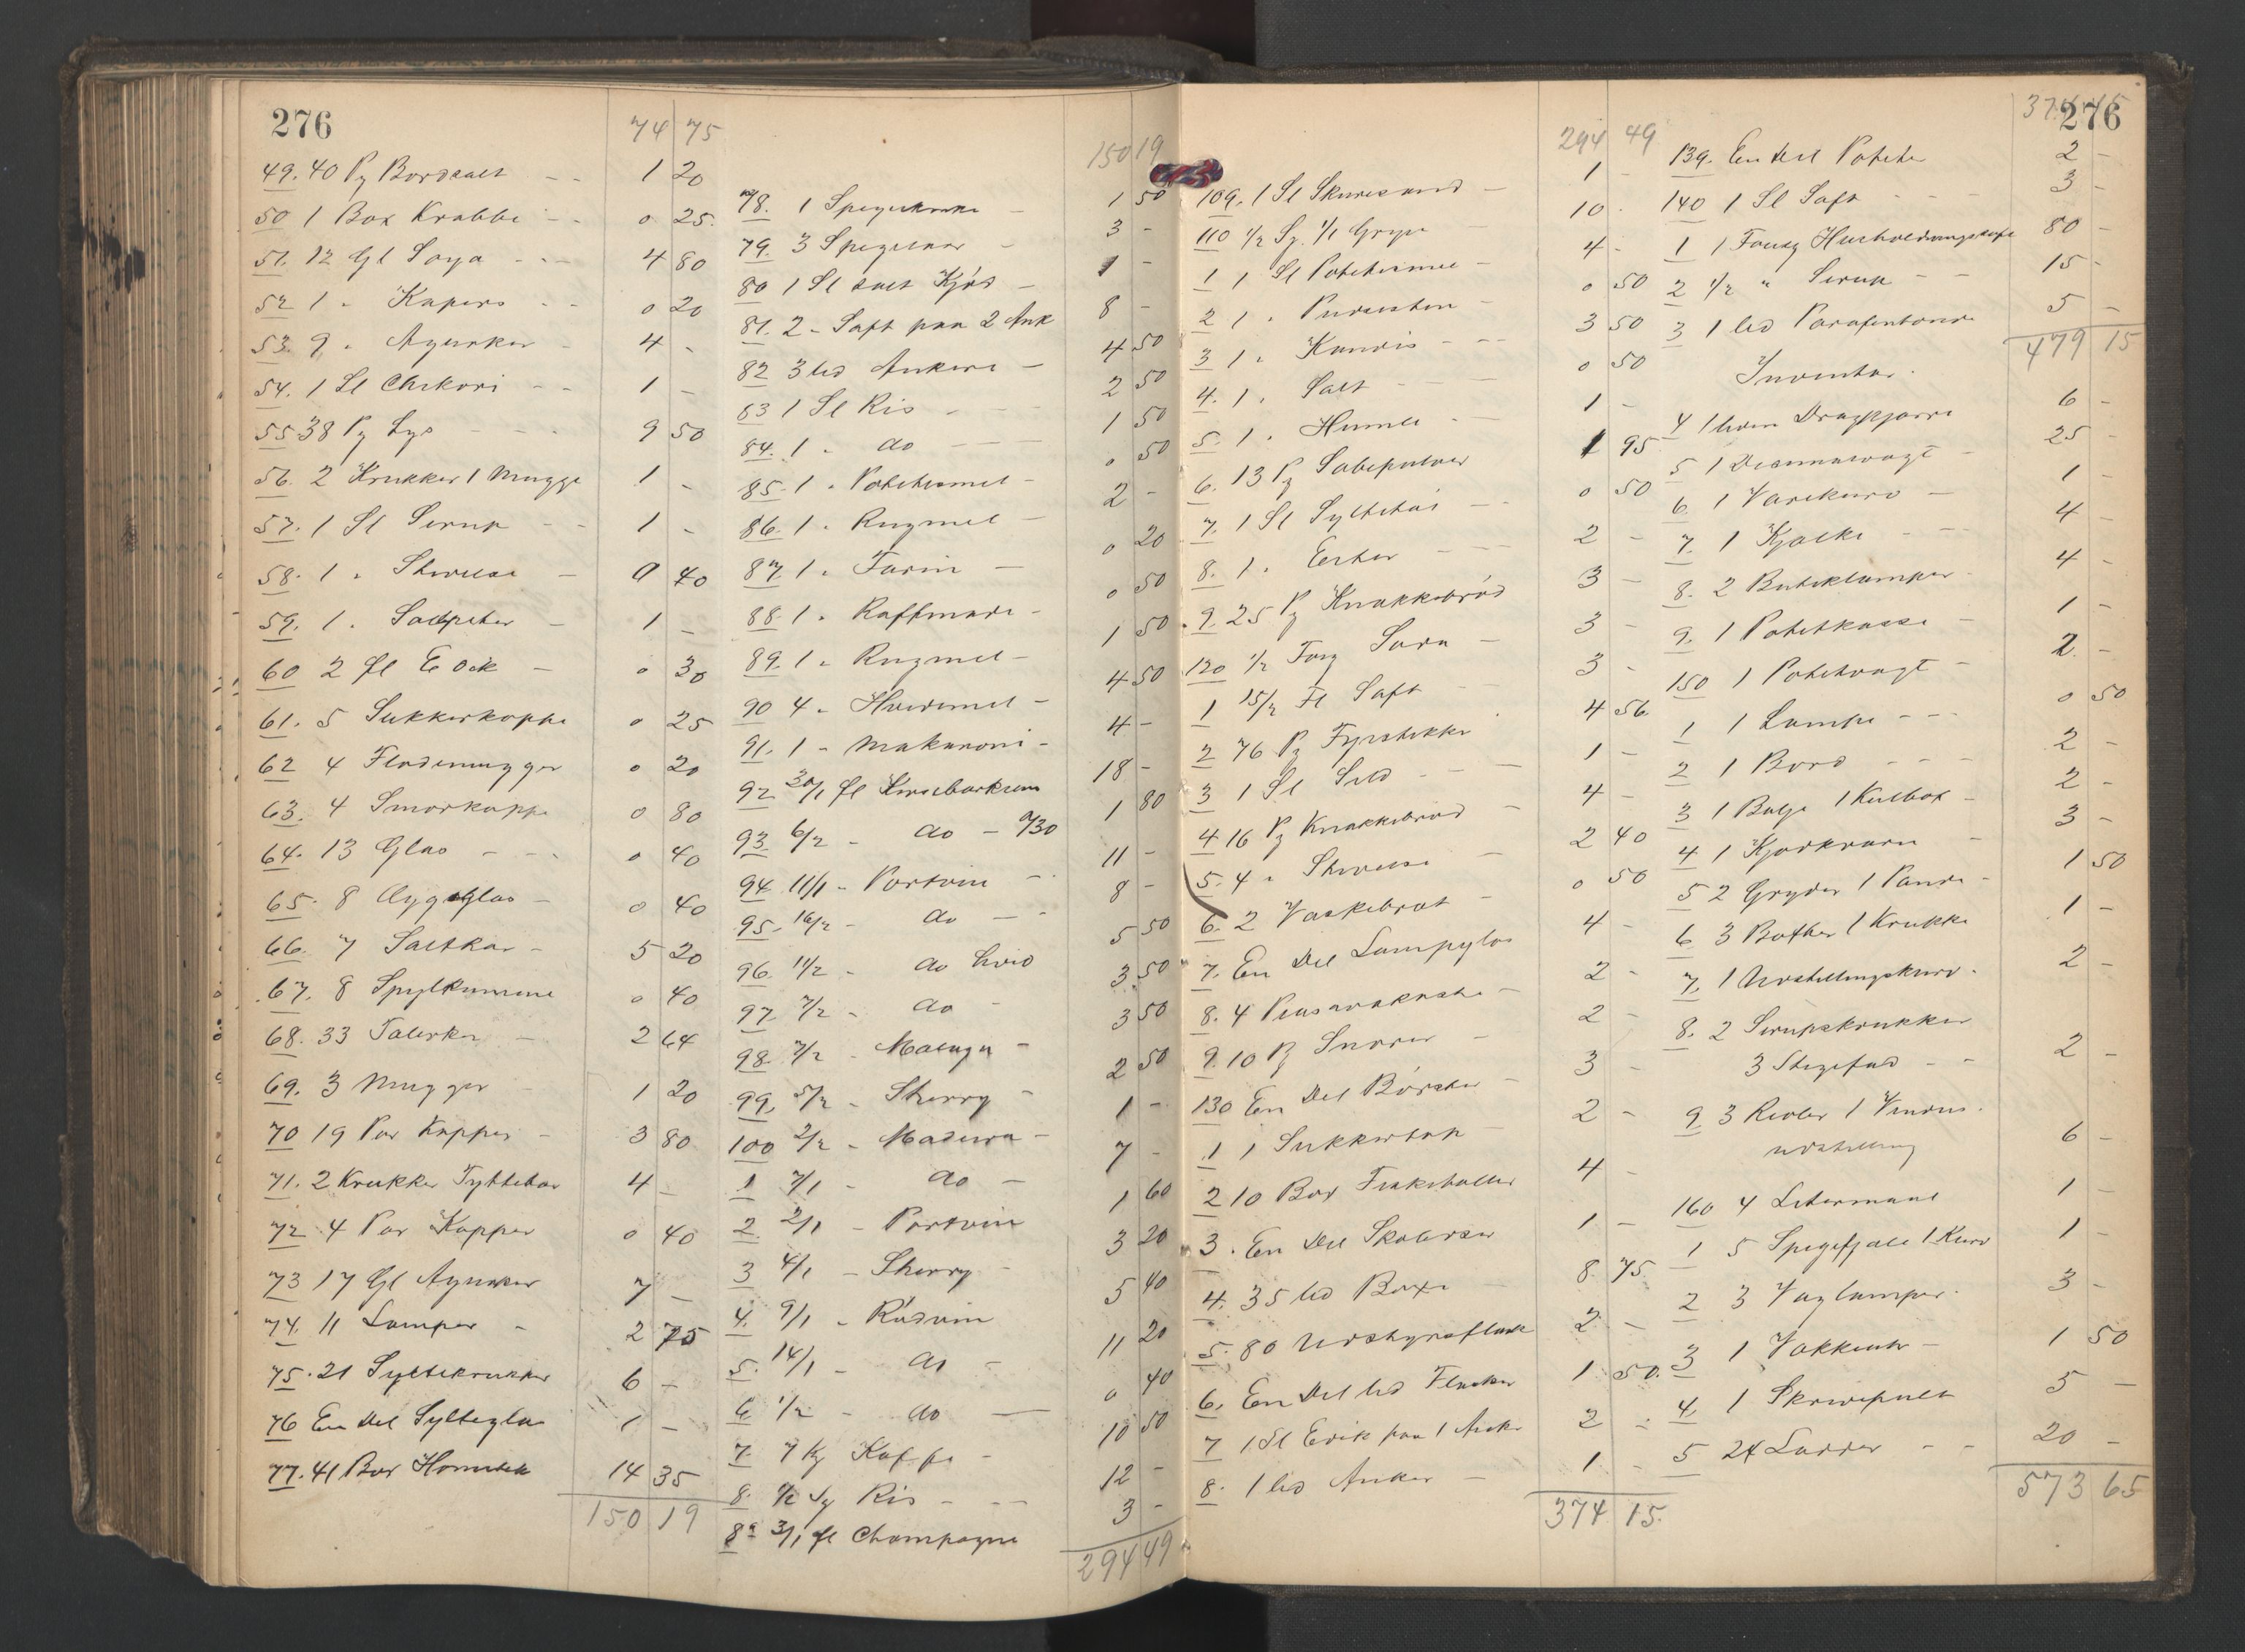 276
74 75
49. 40 Pg Bordsalt - - 1 20
50 1 Box Krabbe - - 0 25.
51. 12 Gl Soya - - - 4 80
52 1 " Kapers - - 0 20
53. 9 " Agurker - 4 -
54. 1 Sl Chikori - - 1 -
55 38 Pg Lys - - - 9 50
56. 2 Krukker 1 Mugge 1 -
57. 1 Sl Sirup - - 1 -
58. 1 " Stivelse - 0 40
59. 1 " Salpeter - 1 -
60 2 fl Edik - 0 30
61. 5 Sukkerkopper 0 25
62 4 Flødemugger 0 20
63. 4 Smørkopper 0 80
64. 13 Glas - - - 0 40
65. 8 Ægeglas - 0 40
66. 7 Saltkar - 5 20
67. 8 Spylkumme 0 40
68. 33 Talerkn - 2 64
69. 3 Mugger - 1 20
70 19 Par Kopper - 3 80
71. 2 Krukker Tyttebær 4 -
72 4 Par Kopper 0 40
73 17 Gl Agurker 7 -
74. 11 Lamper - 2 75
75. 21 Syltekrukker 6 -
76 En Del Sylteglas 1 -
77. 41 Box Hermetik 14 35
150 19
150 19
78. 1 - 1 50
79. 3 - 3 -
80 1 Sl salt Kjød - 1 -
81. 2 " Saft paa 2 Ank 8 -
82 3 led Ankere - 4 50
83 1 Sl Ris - - - 2 50
84. 1 " do - - 1 50
85. 1 " Potetesmel - 0 50
86. 1 " Rugmel - 2 -
87. 1 " Farin - 0 20
88. 1 " Raffinade - 0 50
89. 1 " Rugmel - 1 50
90 4 " Hvedemel - 4 50
91. 1 " Makaroni - 4 -
92 30/1 fl Kirsebærkrem 18 -
93. 6/2 " do - 1 80
94 11/1 " Portvin - 11 -
95. 16/2 " do - - 8 -
96. 11/2 " do hvid 5 50
97. 7/2 " do - 3 50
98 7/2 " Malaga - 3 50
99. 5/2 " Sherry - 2 50
100 2/2 " Madeira - 1 -
1 7/1 " do - 7 -
2. 2/1 " Portvin 1 60
3 4/1 " Sherry - 3 20
4. 9/1 " Rødvin 5 40
5. 14/1 " do - 11 20
6 1/2 " do - 0 40
7. 7 Kg Kaffe - 10 50
8. 1/2 Sg Ris - - - 12 -
8a 3/1 fl Champagne 3 -
294 49
294 49
109. 1 Sl Skuresand - 1 -
110 1/2 Sg. 1/1 Gryn - 10 -
1 1 Sl Potetesmel - 4 -
2 1 " Pudsesten - 0 50
3 1 " Kandis - - - 3 50
4. 1 " Salt - - 0 50
5. 1 " Humle - - 1 -
6. 13 Pg Sæbepulver 1 95
7. 1 Sl Syltetøi - - 0 50
8. 1 " Erter - - - 2 -
9. 25 Pg Knækkebrød 3 -
120 1/2 Fusg Soda - 3 -
1 15/2 Fl Saft - 3 -
2 76 Pg Fyrstikker 4 56
3 1 Sl Sild - - - 1 -
4 16 Pg Knækkebrød - 4 -
5. 4 " Stivelse - 2 40
6. 2 Vaskebræt - 0 50
7. En Del Lampeglas 4 -
8. 4 - 2 -
9. 10 Pg Snører - 2 -
130 En Del Børster - 3 -
1 1 Sukkertop - 2 -
2 10 Box Fiskeboller 4 -
3. En Del Skolisser 1 -
4. 35 led Boxe - 8 75
5. 80 Udstyrsflask 2 -
6. En Del led Flasker 1 50.
7 1 Sl Edik paa 1 Anker 2 -
8. 1 led Anker - 1 -
374 15.
374 15
276
139. En Del Poteter 2 -
140 1 Sl Saft - - - 3 -
1 1 Fustg Husholdningskaffe 80 -
2 1/2 " Sirup - - 15 -
3 1 led Parafintønde 5 -
479 15
Inventar.
4 1 liden Dragkjærre 6 -
5 1 Decimalvægt - 25 -
6. 1 Varekurv - 1 -
7. 1 Kjælke - - - 4 -
8. 2 Butiklamper - 4 -
9. 1 Potetkasse - 1 -
150 1 Potetvægt - 2 -
1 1 Lampe - - - 0 50
2 1 Bord - - - 2 -
3 1 Balje 1 Kulbox - 2 -
4 1 Kjødkværn - 3 -
5 2 Gryder 1 Pande - 1 50
6 3 Bøtter 1 Krukke 1 -
7. 1 Udstillingskurv - 2 -
8. 2 Sirupskrukker
3 Stegefad - - 2 -
9 3 Reoler 1 Vindus.
udstilling 6 -
160 4 Litermaal 1 -
1 5 Spegefjæle 1 Kurv 1 -
2 3 Væglamper. 3 -
3 1 Vækkeuhr - 1 50
4. 1 Skrivepult 5 -
5 24 Ladder - - 20 -
573 65